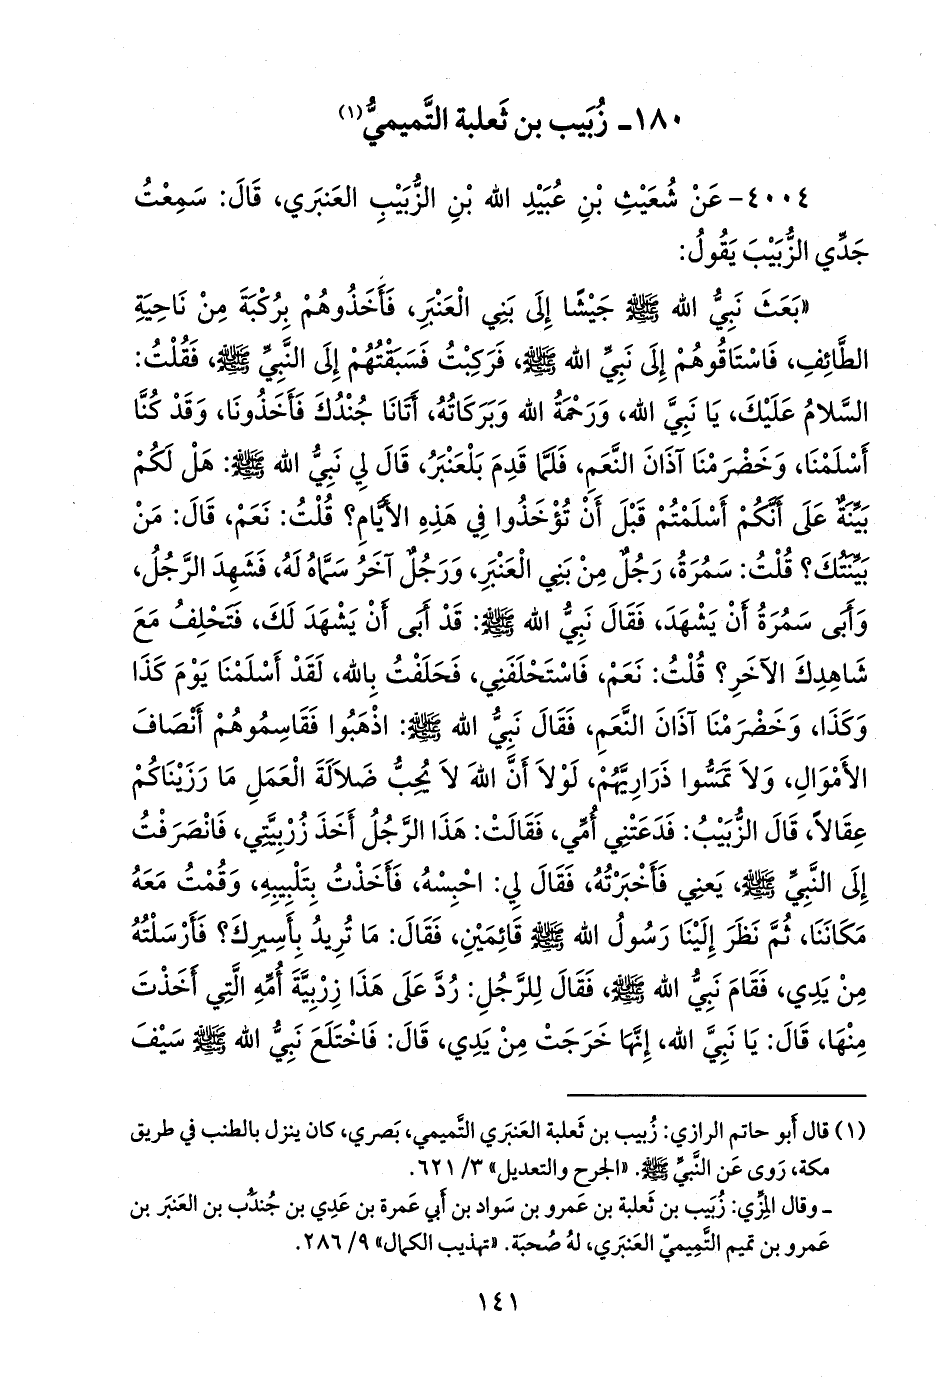 ١٨٠ـ زُبَيب بن ثَعلبة التَّميميُّ(١)
٤٠٠٤- عَنْ شُعَيْثِ بْنِ عُبَيْدِ الله بْنِ الزُّبَيْبِ العَنبَري، قَالَ: سَمِعْتُ
جَدِّي الزُّبَيْبَ يَقُولُ:
«بَعَثَ نَبِيُّ الله ﷺ جَيْشًا إِلَى بَنِي الْعَنْبَرِ، فَأَخَذُوهُمْ بِرُكْبَةَ مِنْ نَاحِيَةِ
الطَّائِفِ، فَاسْتَاقُوهُمْ إِلَى نَبِيِّ الله ﷺ، فَرَكِبْتُ فَسَبَقْتُهُمْ إِلَى النَّبِيِّ ﷺ، فَقُلْتُ:
السَّلَامُ عَلَيْكَ، يَا نَبِيَّ الله، وَرَحْمَةُ الله وَبَرَكَاتُهُ، أَتَانَا جُنْدُكَ فَأَخَذُونَا، وَقَدْ كُنَّا
أَسْلَمْنَا، وَخَضْرَمْنَا آذَانَ النَّعَمِ، فَلَمَّا قَدِمَ بَلْعَنْبَرُ، قَالَ لِي نَبِيُّ الله ﷺ: هَلْ لَكُمْ
بَيِّنَةٌ عَلَى أَنَّكُمْ أَسْلَمْتُمْ قَبْلَ أَنْ تُؤْخَذُوا فِي هَذِهِ الأَيَّامِ؟ قُلْتُ: نَعَمْ، قَالَ: مَنْ
بَيِّنَتُكَ؟ قُلْتُ: سَمُرَةُ، رَجُلٌ مِنْ بَنِي الْعَنْبَرِ، وَرَجُلٌ آخَرُ سَمَّاهُ لَهُ، فَشَهِدَ الرَّجُلُ،
وَأَبَى سَمُرَةُ أَنْ يَشْهَدَ، فَقَالَ نَبِيُّ الله ﷺ: قَدْ أَبَى أَنْ يَشْهَدَ لَكَ، فَتَحْلِفُ مَعَ
شَاهِدِكَ الآخَرِ؟ قُلْتُ: نَعَمْ، فَاسْتَحْلَفَنِي، فَحَلَفْتُ بِالله، لَقَدْ أَسْلَمْنَا يَوْمَ كَذَا
وَكَذَا، وَخَضْرَمْنَا آذَانَ النَّعَمِ، فَقَالَ نَبِيُّ الله ﷺ: اذْهَبُوا فَقَاسِمُوهُمْ أَنْصَافَ
الأَمْوَالِ، وَلَا تَمَسُّوا ذَرَارِيَّهُمْ، لَوْلَا أَنَّ اللهَ لَا يُحِبُّ ضَلَالَةَ الْعَمَلِ مَا رَزَيْنَاكُمْ
عِقَالاً، قَالَ الزُّبَيْبُ: فَدَعَتْنِي أُمِّي، فَقَالَتْ: هَذَا الرَّجُلُ أَخَذَ زُرْبِيَّتِي، فَانْصَرَفْتُ
إِلَى النَّبِيِّ ﷺ، يَعنِي فَأَخْبَرْتُهُ، فَقَالَ لِي: احْبِسْهُ، فَأَخَذْتُ بِتَلْبِيبِهِ، وَقُمْتُ مَعَهُ
مَكَانَنَا، ثُمَّ نَظَرَ إِلَيْنَا رَسُولُ الله ﷺ قَائِمَيْنِ، فَقَالَ: مَا تُرِيدُ بِأَسِيرِكَ؟ فَأَرْسَلْتُهُ
مِنْ يَدِي، فَقَامَ نَبِيُّ الله ﷺ، فَقَالَ لِلرَّجُلِ: رُدَّ عَلَى هَذَا زِرْبِيَّةَ أُمِّهِ الَّتِي أَخَذْتَ
مِنْهَا، قَالَ: يَا نَبِيَّ الله، إِنَّهَا خَرَجَتْ مِنْ يَدِي، قَالَ: فَاخْتَلَعَ نَبِيُّ الله ﷺ سَيْفَ
(١) قال أَبو حاتم الرازي: زُبيب بن ثَعلبة العَنبَري التَّميمي، بَصري، كان ينزل بالطنب في طريق
مكة، رَوى عَن النَّبيِّ ﷺ. «الجرح والتعديل» ٣/ ٦٢١.
ـ وقال المِزِّي: زُبَيب بن ثَعلبة بن عَمرو بن سَواد بن أَبي عَمرة بن عَدِي بن جُندُب بن العَنبَر بن
عَمرو بن تميم التَّميميّ العَنبَري، لهُ صُحبَة. «تهذيب الكمال» ٩/ ٢٨٦.
١٤١